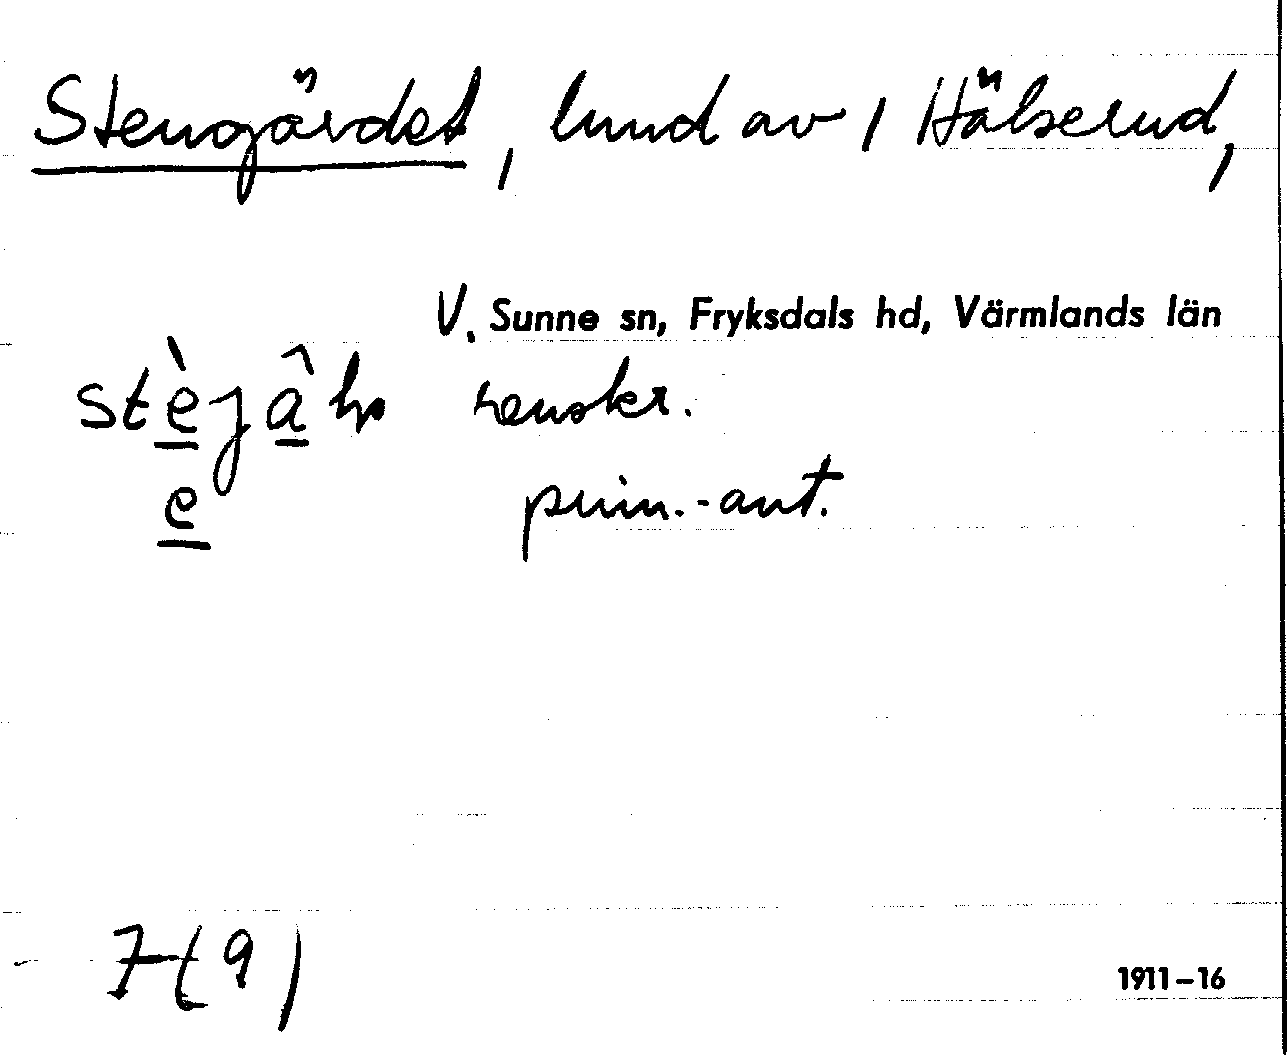 Stengärdet, lund av 1 Hälserud,
V. Sunne sn, Fryksdals hd, Värmlands län
renskr.
e prim.-ant.
7 (9)
1911–16